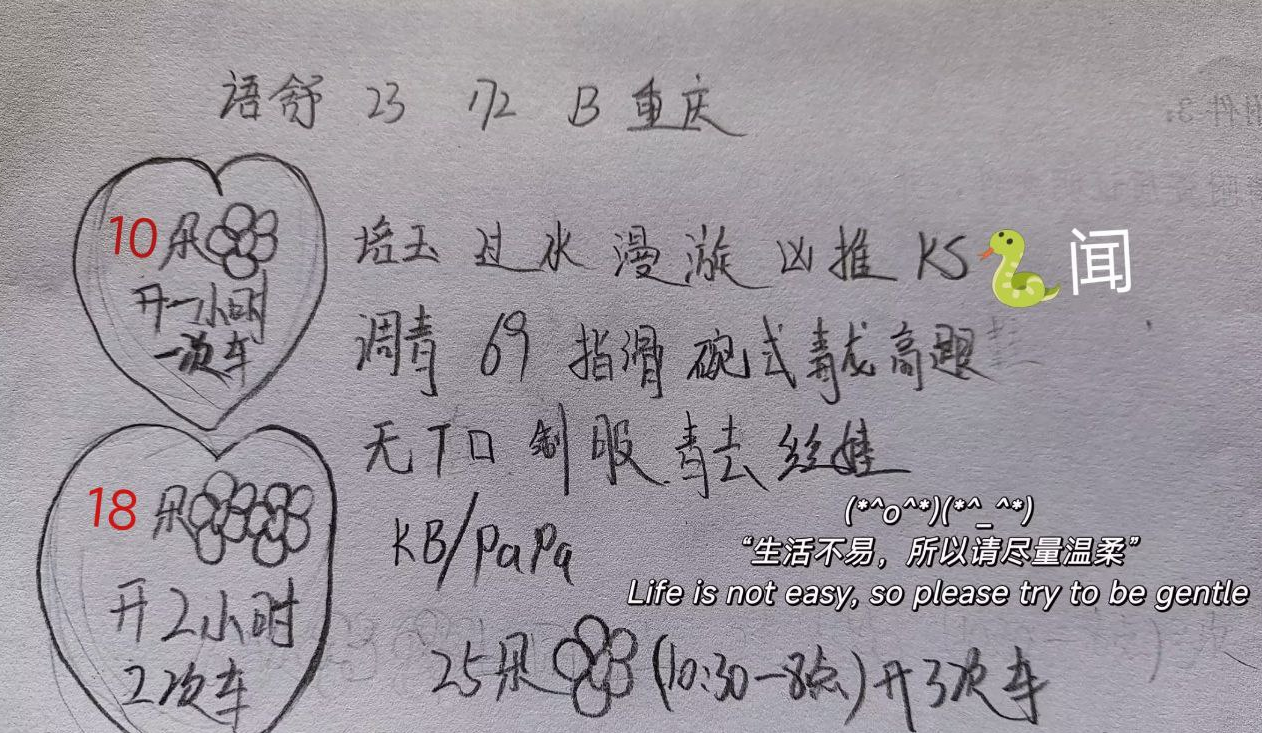 语舒 23 172 B 重庆
10朵
开一小时
一次车
培玉 过水 漫漩 凶推 KS 闻
调青 69 指滑 碗式 毒龙 高跟
无T口 制服 青去 丝娃
18朵
开2小时
2次车
KB/PaPa
(*^o^*)(*^_^*)
“生活不易，所以请尽量温柔”
Life is not easy, so please try to be gentle
25朵(10:30-8点)开3次车